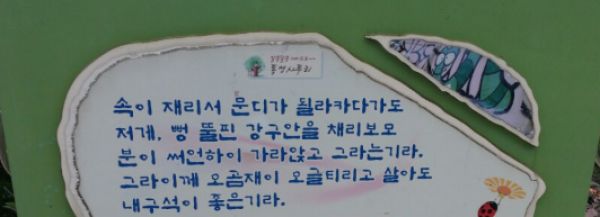 속이 재리서 문디가 될라카다가도
저게, 뻥 뚤핀 강구안을 채리보모
분이 써언하이 가라앉고 그라는기라.
그라이께 오곰재이 오글티리고 살아도
내구석이 좋은기라.